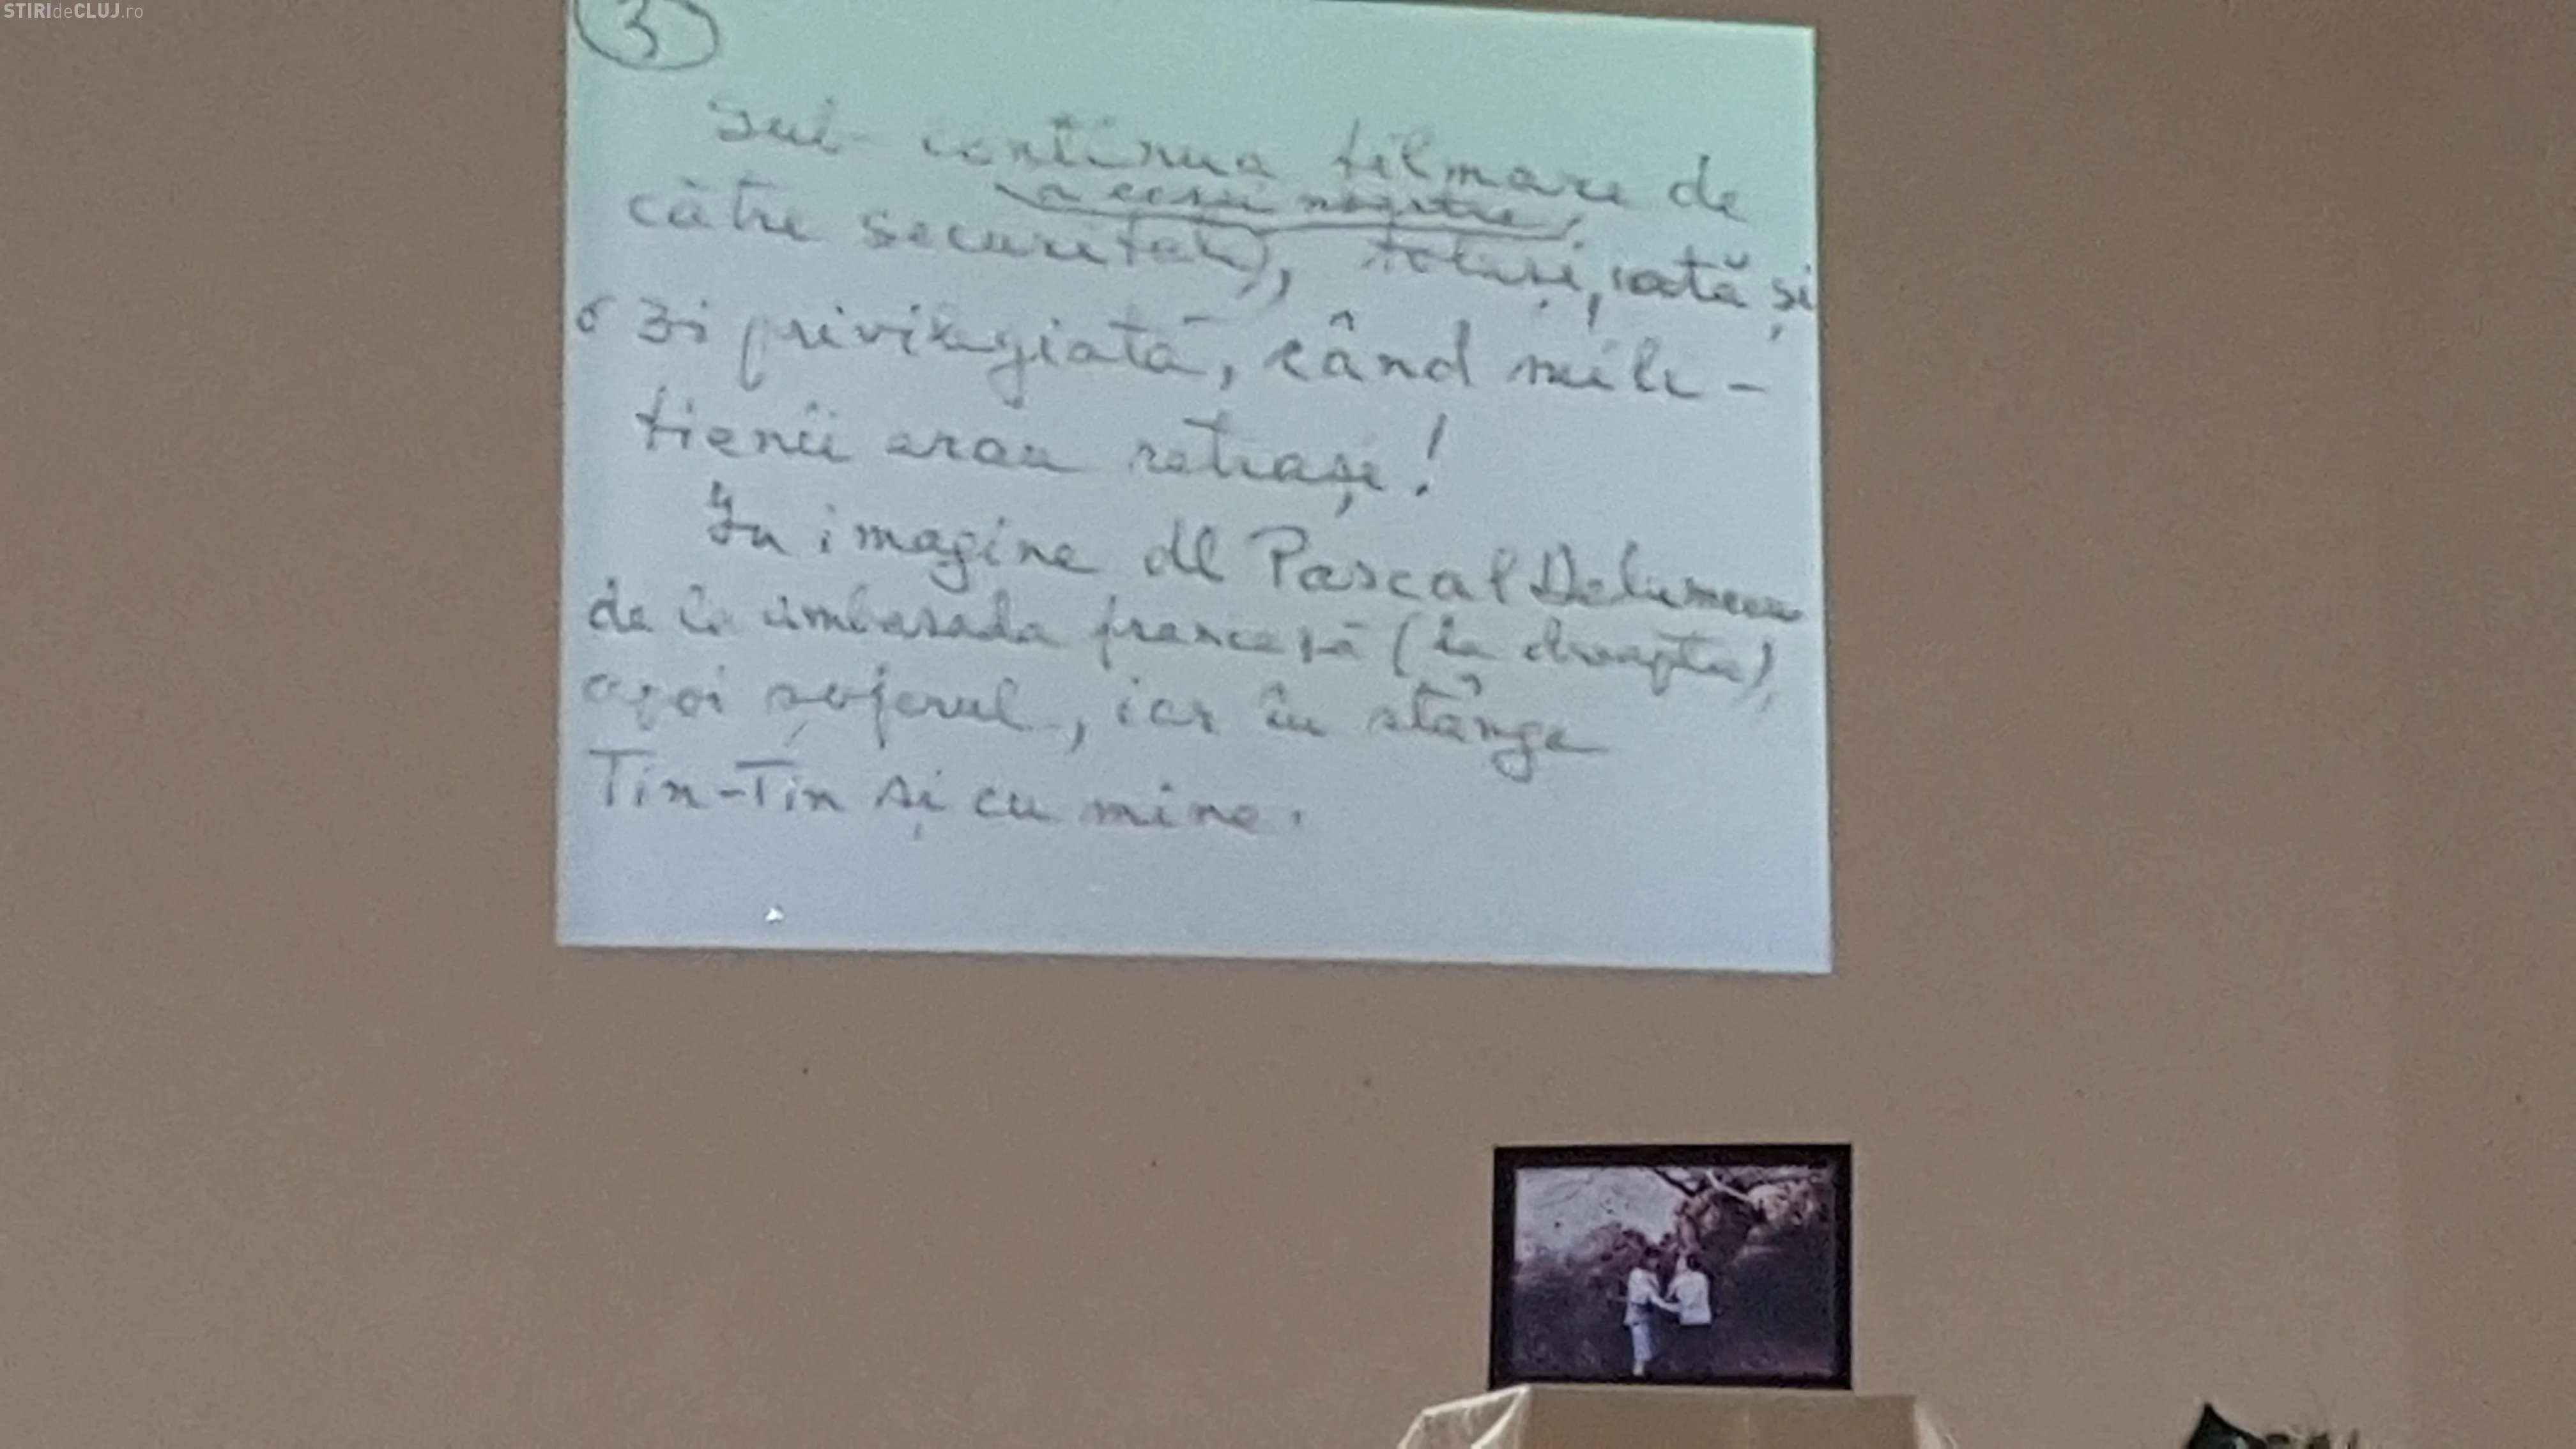 STIRIdeCLUJ.ro
3
Sub continua filmare de
a casei noastre,
către securitate), totuși, iată și
o zi privilegiată, când mili-
tienii erau retrași!
In imagine dl Pascal Delumeau
de la ambasada franceză (la dreapta),
apoi șoferul, iar în stânga
Tin-Tin și cu mine.